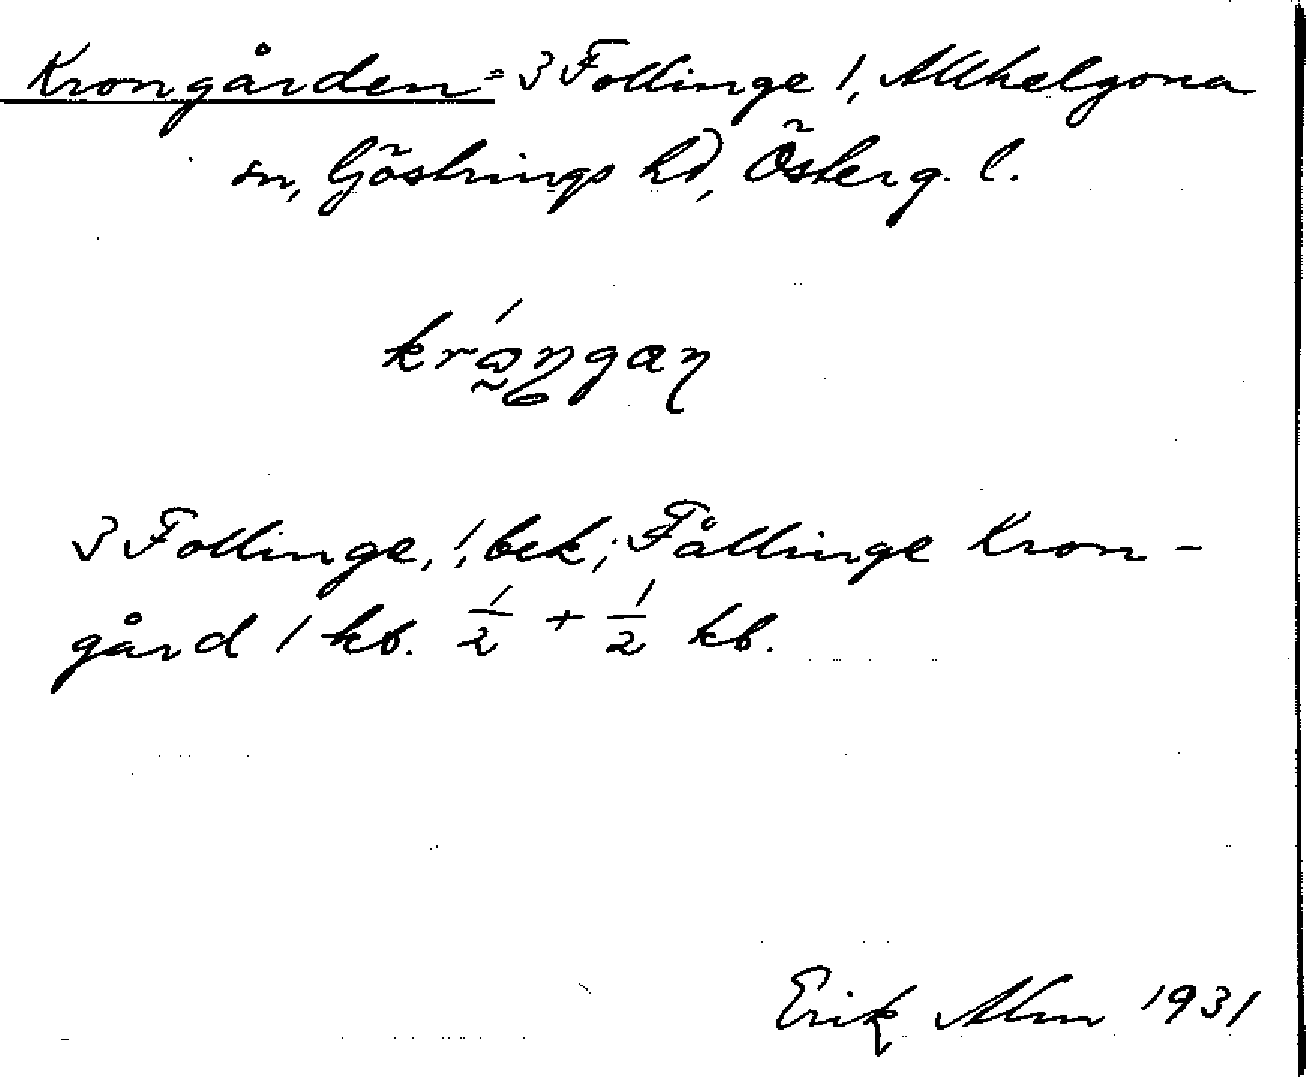 Krongården = 3 Follinge 1, Allhelgona
sn, Göstrings hd, Österg. l.
3 Follinge, 1, bek; Fållinge Kron-
gård 1 kb. 1/2 + 1/2 kb.
Erik Alm 1931